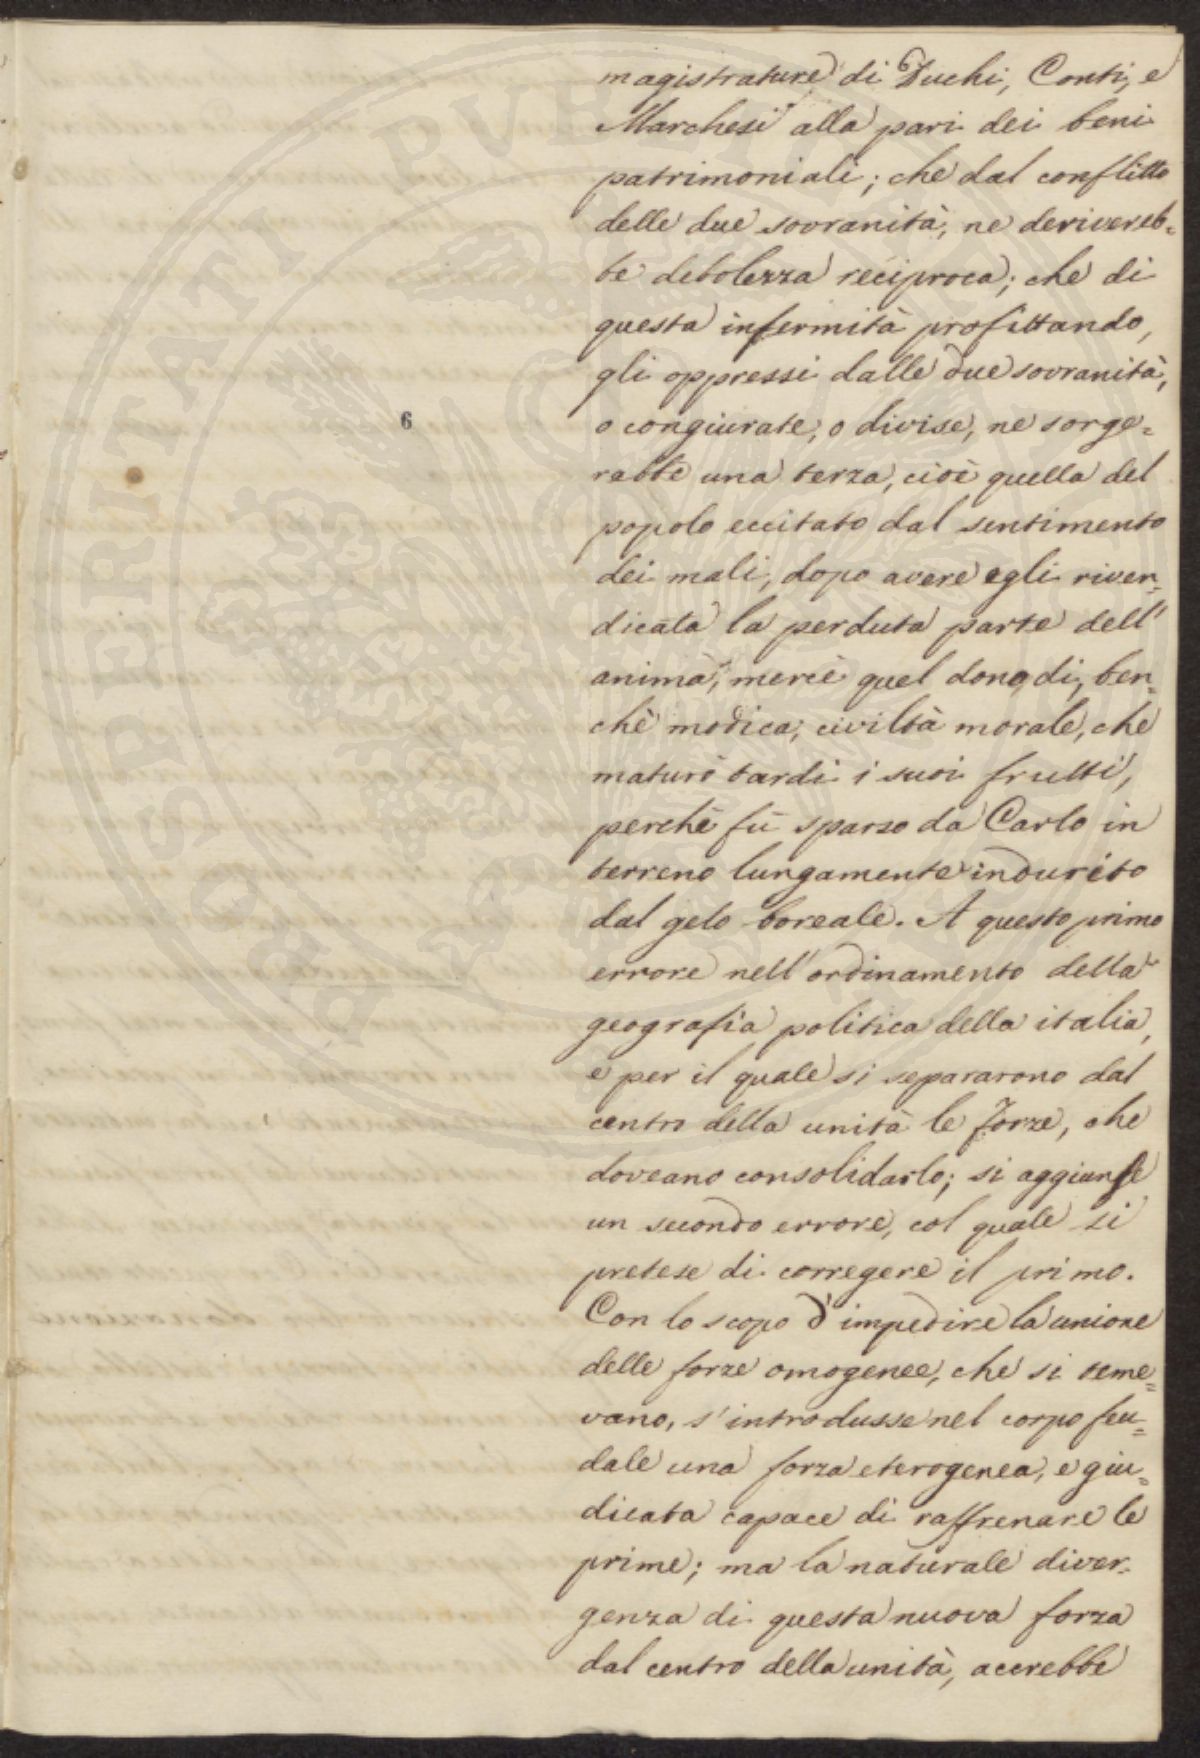 magistrature di Duchi, Conti, e
Marchesi alla pari dei beni
patrimoniali; che dal conflitto
delle due sovranità, ne deriverеb=
be debolezza reciproca; che di
questa infermità profittando,
gli oppressi dalle due sovranità,
o congiurate, o divise, ne sorge=
rebbe una terza, cioè quella del
6
popolo eccitato dal sentimento
dei mali, dopo avere egli riven=
dicata la perduta parte dell'
anima, mercè quel dono di, ben=
chè modica, civiltà morale, che
maturò tardi i suoi frutti,
perchè fù sparso da Carlo in
terreno lungamente indurito
dal gelo boreale. A questo primo
errore nell'ordinamento della
geografia politica della italia,
e per il quale si separarono dal
centro della unità le forze, che
doveano consolidarlo; si aggiunse
un secondo errore, col quale si
pretese di corregere il primo.
Con lo scopo d'impedire la unione
delle forze omogenee, che si teme=
vano, s'introdusse nel corpo feu=
dale una forza eterogenea, e giu=
dicata capace di raffrenare le
prime; ma la naturale diver=
genza di questa nuova forza
dal centro della unità, accrebbe
PROSPERITATI PVBLICAE